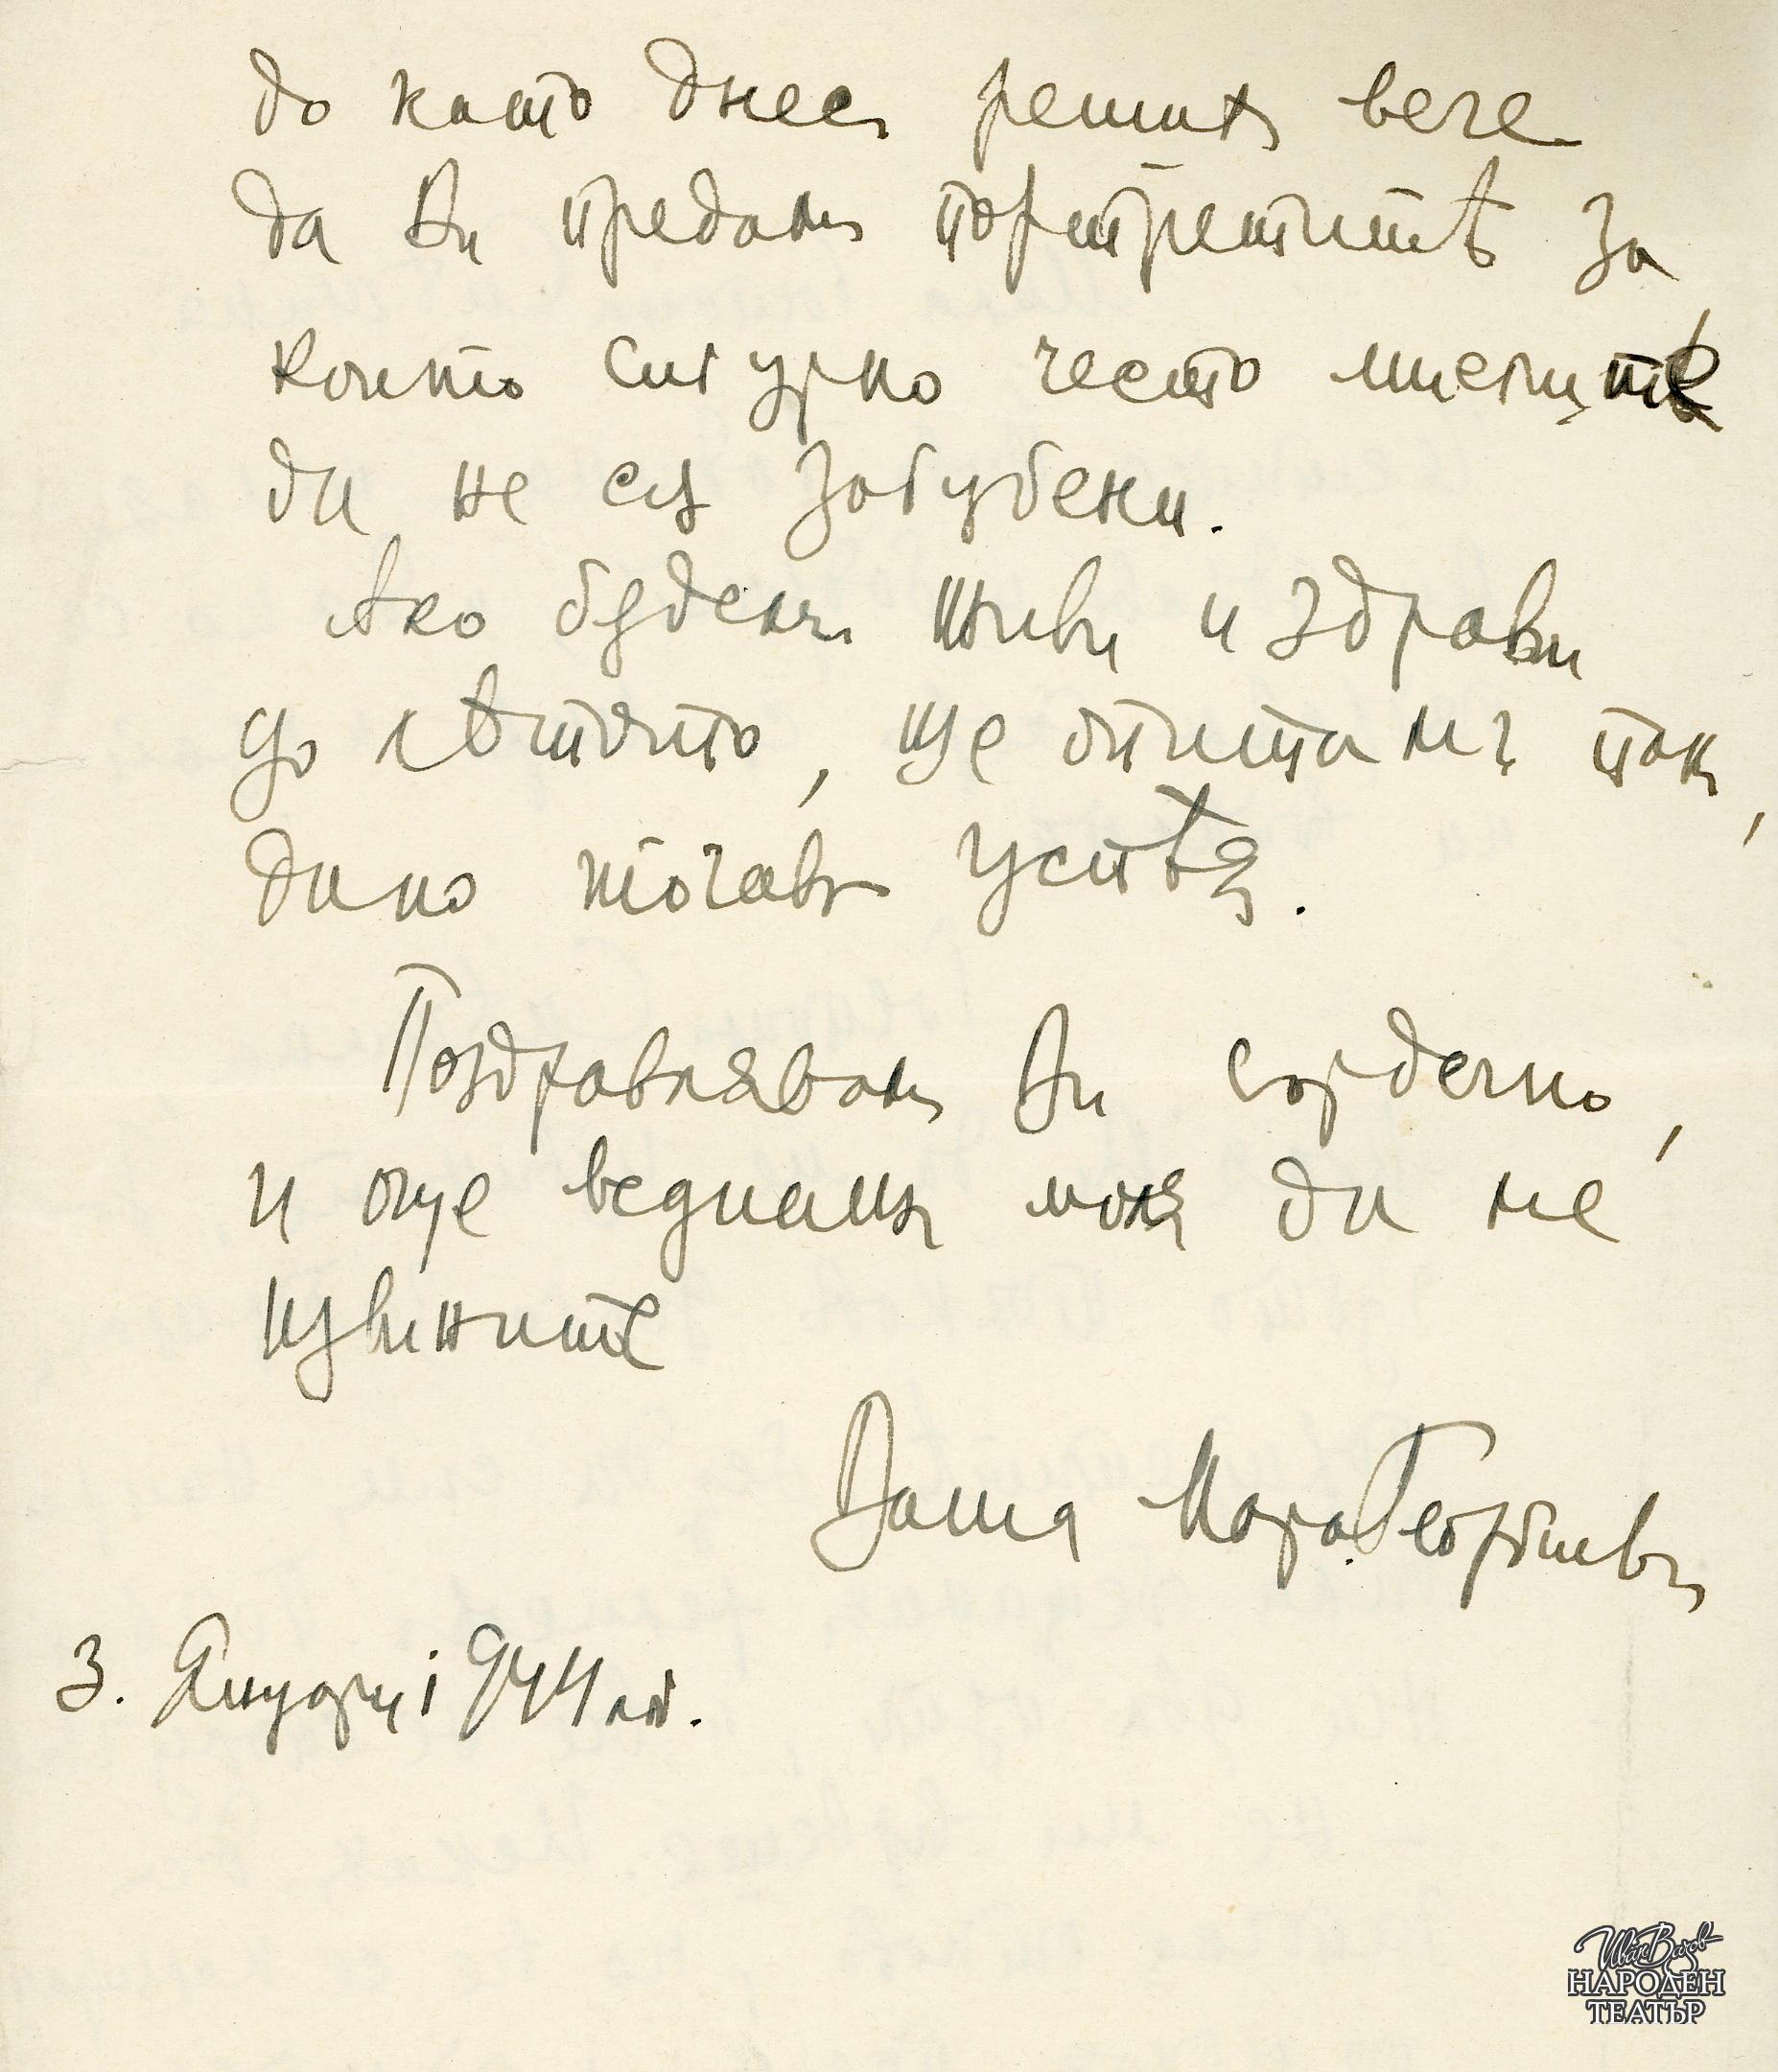 до като днесъ решихъ вече
да Ви предамъ портретитѣ за
които сигурно често мислите
да не сѫ загубени.
Ако бѫдемъ живи и здрави
до лѣтото, ще опитамъ пак,
дано тогавъ успѣя.
Поздравлявамъ Ви сърдечно,
и още веднашъ моля да ме
извините
Ваша Мара Георгиева
3. Януарий 1944
Иван Вазов
НАРОДЕН
ТЕАТЪР